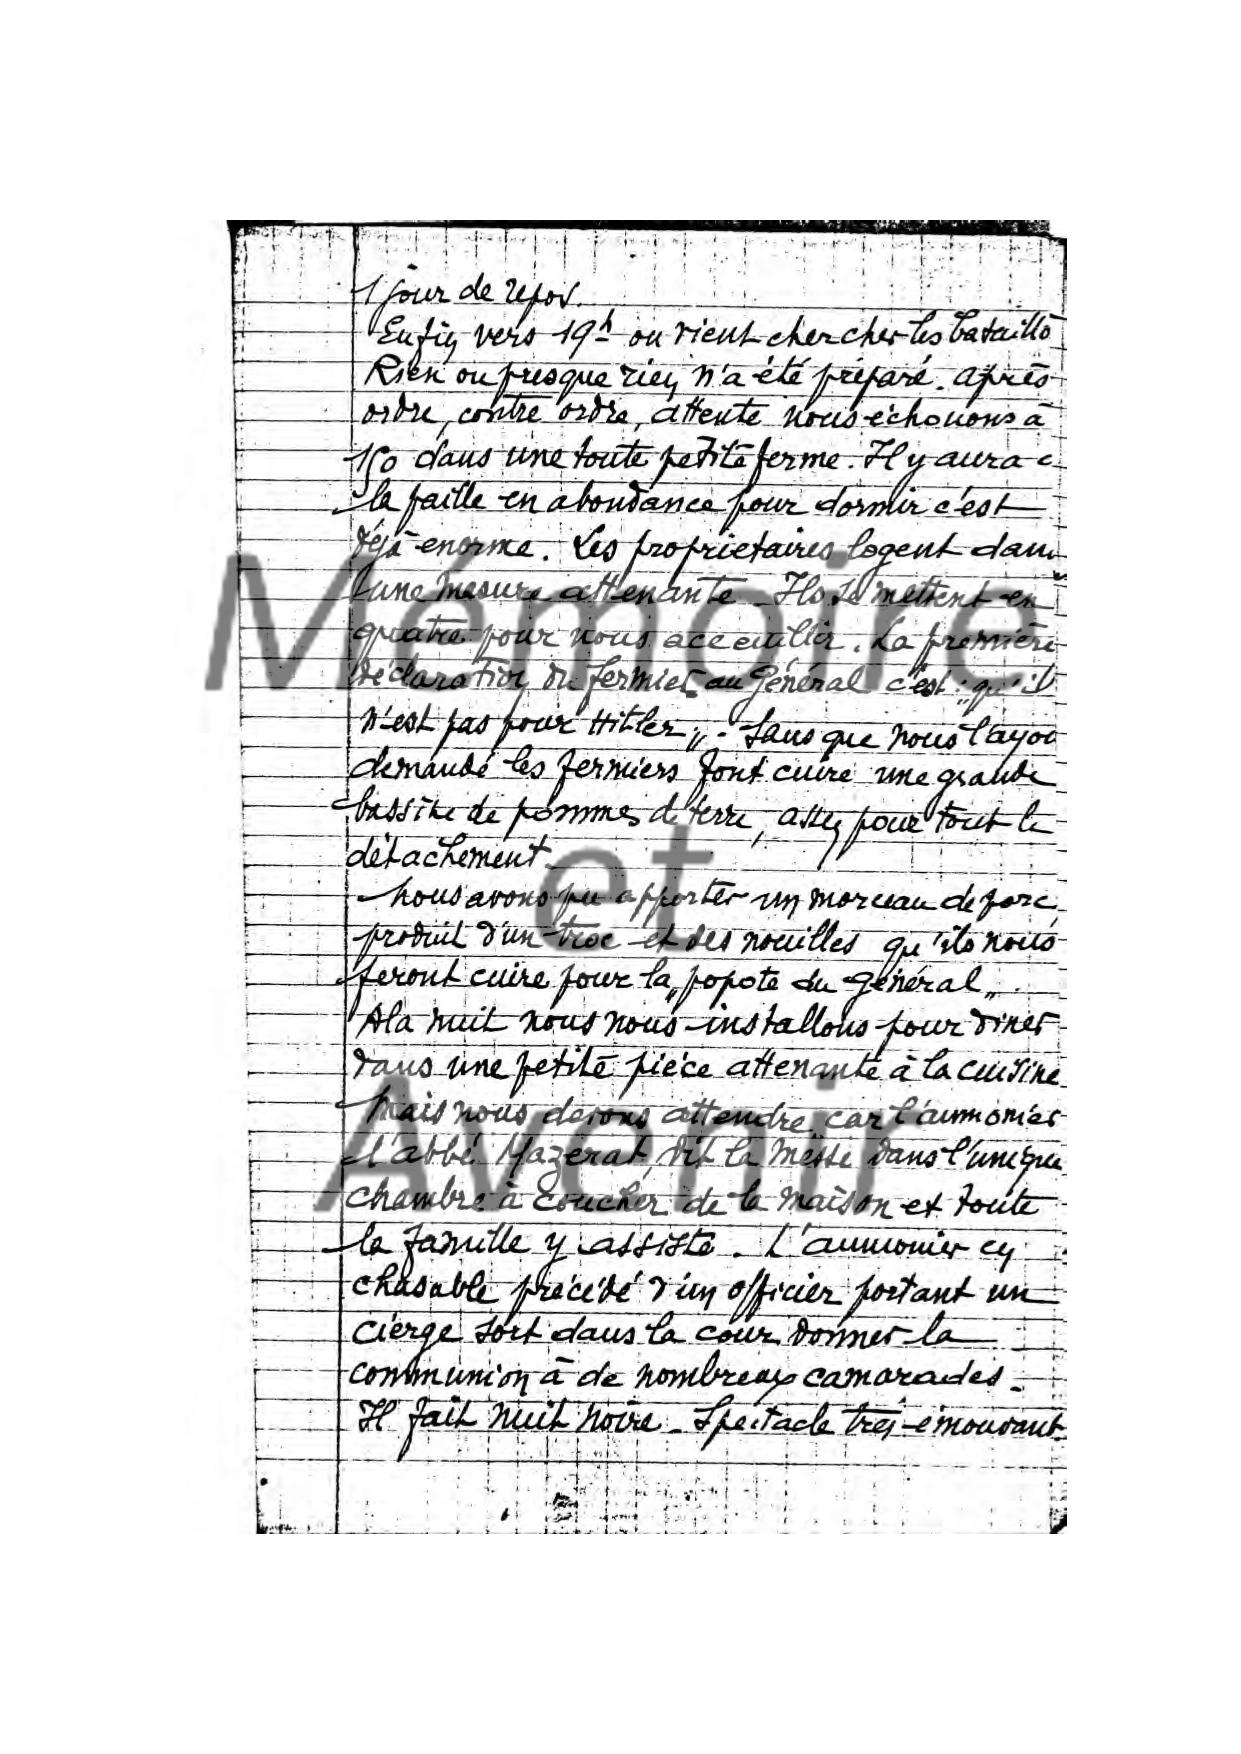 1 jour de repos.
Enfin vers 19h on vient chercher les bataillo
Rien ou presque rien n'a été préparé. après
ordre, contre ordre, attente nous échouons à
150 dans une toute petite ferme. Il y aura
la paille en abondance pour dormir c'est
déjà enorme. Les propriétaires logent dans
une masure attenante. Ils se mettent en
quatre pour nous acceuillir. La première
déclaration du fermier au Général c'est "qu'il
n'est pas pour Hitler". Sans que nous l'ayon
demandé les fermiers font cuire une grande
bassine de pommes de terre, assez pour tout le
détachement.
Nous avons pu apporter un morceau de porc,
produit d'un troc et des nouilles qu'ils nous
feront cuire pour la "popote du Général".
A la nuit nous nous installons pour diner
dans une petite pièce attenante à la cuisine
Mais nous devons attendre car l'aumonier
l'abbé Mazerat, dit la messe dans l'unique
chambre à coucher de la maison et toute
la famille y assiste. L'aumonier en
chasuble précédé d'un officier portant un
cierge sort dans la cour donner la
communion à de nombreux camarades.
Il fait nuit noire. Spectacle très émouvant.
Mémoire
et
Avenir